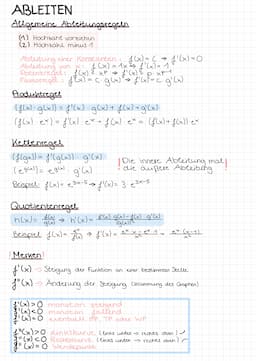 ABLEITEN
Allgemeine Ableitungsregeln
(1) Hochzahl vorziehen
(2) Hochzahl minus 1
Ableitung einer Konstanten: f(x) = c → f'(x) = 0
Ableitung von x: f(x) = 1x → f'(x) = 1
Potenzregel: f(x) = x^p → f'(x) = p · x^(p-1)
Faktorregel: f(x) = c · g(x) → f'(x) = c · g'(x)
Produktregel
(f(x) · g(x))' = f'(x) · g(x) + f(x) · g'(x)
(f(x) · e^x)' = f'(x) · e^x + f(x) · e^x = (f'(x) + f(x)) e^x
Kettenregel
(f(g(x)))' = f'(g(x)) · g'(x)
! Die innere Ableitung mal die äußere Ableitung !
(e^g(x))' = e^g(x) · g'(x)
Beispiel: f(x) = e^(3x-5) → f'(x) = 3 · e^(3x-5)
Quotientenregel
h(x) = f(x)/g(x) → h'(x) =
Beispiel f(x) = → f'(x) =
Merken!
f'(x) → Steigung der Funktion an einer bestimmten Stelle
f''(x) → Änderung der Steigung (Krümmung des Graphen)
f'(x) > 0 monoton steigend
f'(x) < 0 monoton fallend
f'(x) = 0 eventuell HP, TP oder WP
f''(x) > 0 Linkskurve (links unten → rechts oben)
f''(x) < 0 Rechtskurve (links unter → rechts oben)
f''(x) = 0 Wendepunkt